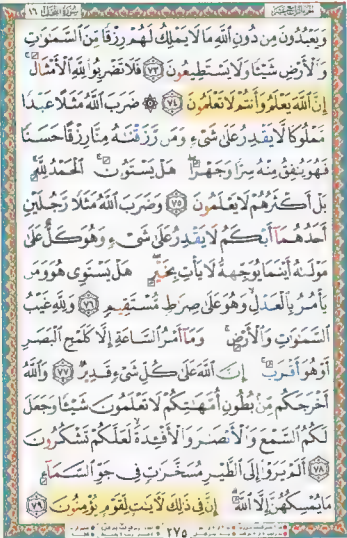 سورة النحل ١٦
وَيَعْبُدُونَ مِن دُونِ ٱللَّهِ مَا لَا يَمْلِكُ لَهُمْ رِزْقًا مِّنَ ٱلسَّمَٰوَٰتِ
وَٱلْأَرْضِ شَيْـًٔا وَلَا يَسْتَطِيعُونَ ٧٣ فَلَا تَضْرِبُوا۟ لِلَّهِ ٱلْأَمْثَالَ
إِنَّ ٱللَّهَ يَعْلَمُ وَأَنتُمْ لَا تَعْلَمُونَ ٧٤ ۞ ضَرَبَ ٱللَّهُ مَثَلًا عَبْدًا
مَّمْلُوكًا لَّا يَقْدِرُ عَلَىٰ شَىْءٍ وَمَن رَّزَقْنَٰهُ مِنَّا رِزْقًا حَسَنًا
فَهُوَ يُنفِقُ مِنْهُ سِرًّا وَجَهْرًا هَلْ يَسْتَوُۥنَ ٱلْحَمْدُ لِلَّهِ
بَلْ أَكْثَرُهُمْ لَا يَعْلَمُونَ ٧٥ وَضَرَبَ ٱللَّهُ مَثَلًا رَّجُلَيْنِ
أَحَدُهُمَآ أَبْكَمُ لَا يَقْدِرُ عَلَىٰ شَىْءٍ وَهُوَ كَلٌّ عَلَىٰ
مَوْلَىٰهُ أَيْنَمَا يُوَجِّههُّ لَا يَأْتِ بِخَيْرٍ هَلْ يَسْتَوِى هُوَ وَمَن
يَأْمُرُ بِٱلْعَدْلِ وَهُوَ عَلَىٰ صِرَٰطٍ مُّسْتَقِيمٍ ٧٦ وَلِلَّهِ غَيْبُ
ٱلسَّمَٰوَٰتِ وَٱلْأَرْضِ وَمَآ أَمْرُ ٱلسَّاعَةِ إِلَّا كَلَمْحِ ٱلْبَصَرِ
أَوْ هُوَ أَقْرَبُ إِنَّ ٱللَّهَ عَلَىٰ كُلِّ شَىْءٍ قَدِيرٌ ٧٧ وَٱللَّهُ
أَخْرَجَكُم مِّنۢ بُطُونِ أُمَّهَٰتِكُمْ لَا تَعْلَمُونَ شَيْـًٔا وَجَعَلَ
لَكُمُ ٱلسَّمْعَ وَٱلْأَبْصَٰرَ وَٱلْأَفْـِٔدَةَ لَعَلَّكُمْ تَشْكُرُونَ
٧٨ أَلَمْ يَرَوْا۟ إِلَى ٱلطَّيْرِ مُسَخَّرَٰتٍ فِى جَوِّ ٱلسَّمَآءِ
مَا يُمْسِكُهُنَّ إِلَّا ٱللَّهُ إِنَّ فِى ذَٰلِكَ لَءَايَٰتٍ لِّقَوْمٍ يُؤْمِنُونَ ٧٩
٢٧٥